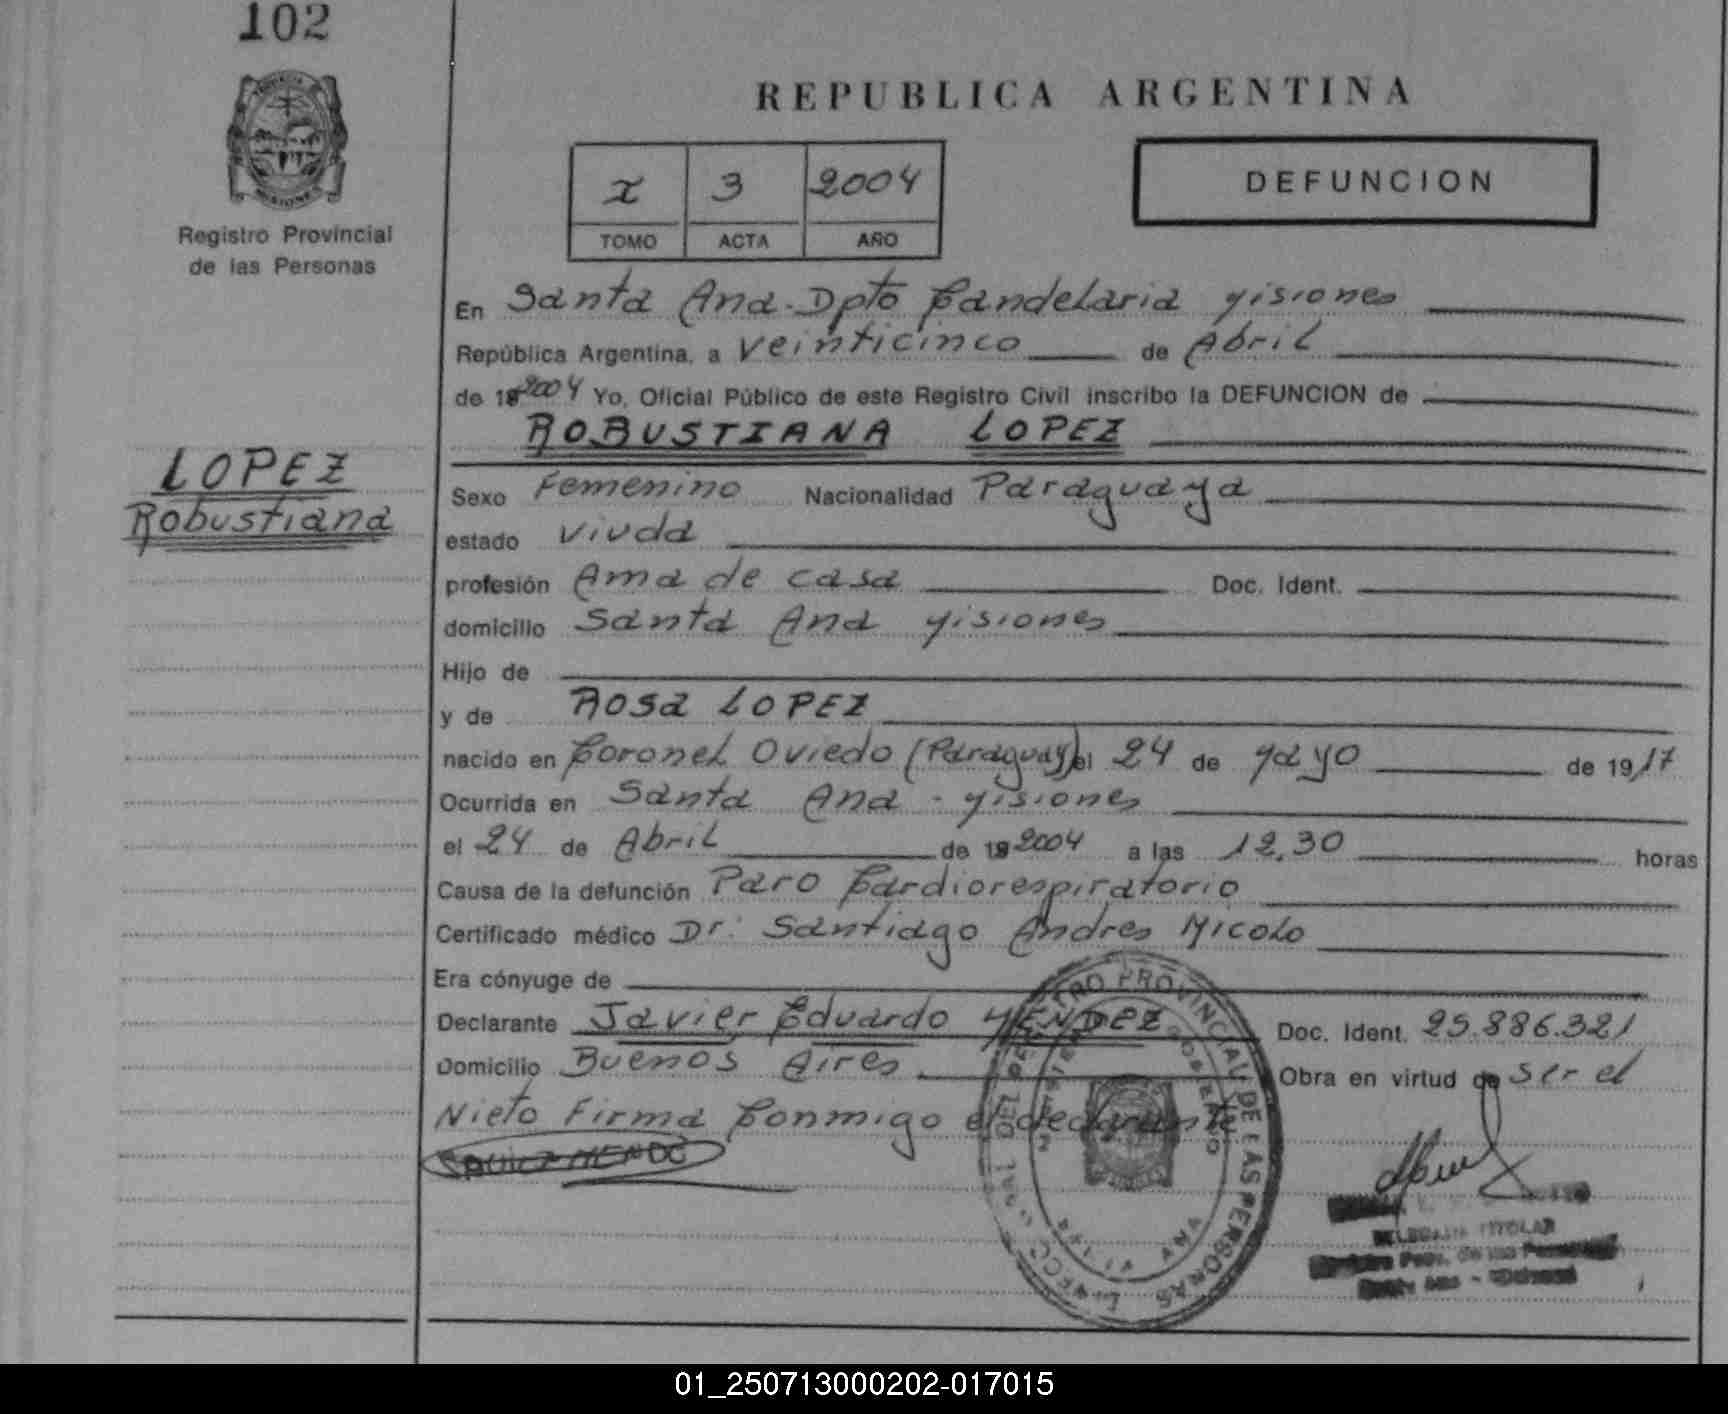 102
REPUBLICA ARGENTINA
Registro Provincial
de las Personas
I 3 2004
TOMO ACTA AÑO
DEFUNCION
En Santa Ana - Dpto Candelaria Misiones
República Argentina, a veinticinco de Abril
de 19 2004 Yo, Oficial Público de este Registro Civil inscribo la DEFUNCION de
ROBUSTIANA LOPEZ
LOPEZ
Robustiana
Sexo Femenino Nacionalidad Paraguaya
estado viuda
profesión Ama de casa Doc. Ident.
domicilio Santa Ana Misiones
Hijo de
y de Rosa LOPEZ
nacido en Coronel Oviedo (Paraguay) el 24 de Mayo de 1917
Ocurrida en Santa Ana - Misiones
el 24 de Abril de 19 2004 a las 12,30 horas
Causa de la defunción Paro Cardiorespiratorio
Certificado médico Dr. Santiago Andres Nicolo
Era cónyuge de
Declarante Javier Eduardo MENDEZ Doc. Ident. 25.886.321
Domicilio Buenos Aires Obra en virtud de ser el
Nieto Firma Conmigo el declarante
REGISTRO PROVINCIAL DE LAS PERSONAS
DELEGADA TITULAR
01_250713000202-017015